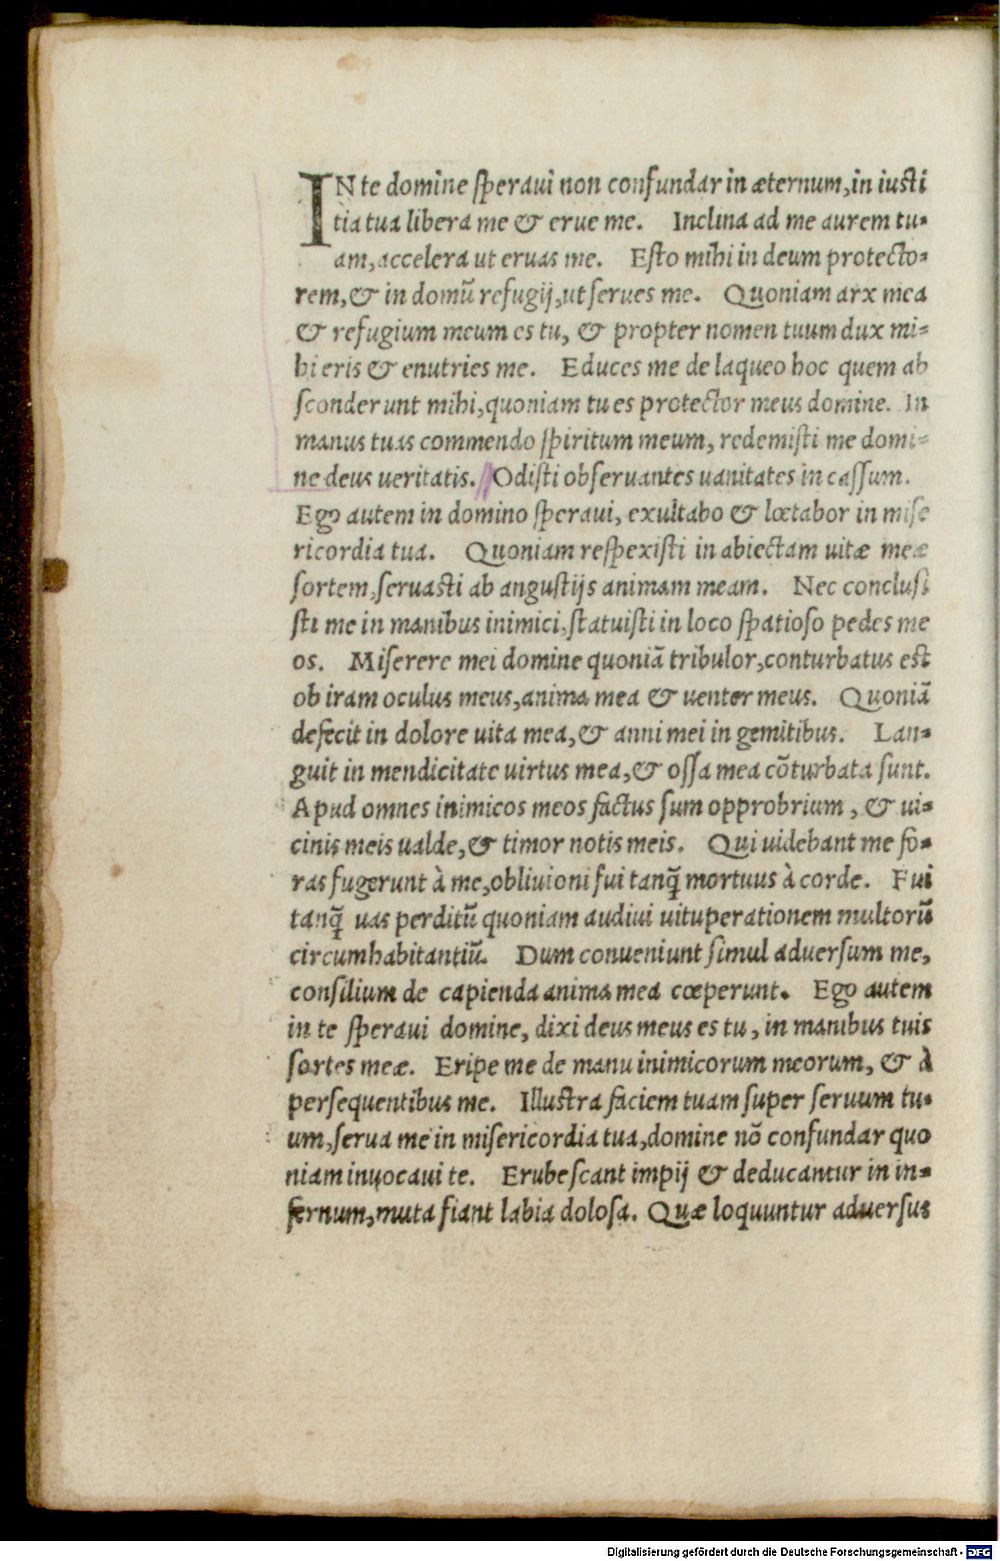 IN te domine speraui non confundar in æternum, in iusti
tia tua libera me & erue me. Inclina ad me aurem tu-
am, accelera ut eruas me. Esto mihi in deum protecto-
rem, & in domū refugij, ut serues me. Quoniam arx mea
& refugium meum es tu, & propter nomen tuum dux mi-
hi eris & enutries me. Educes me de laqueo hoc quem ab
sconderunt mihi, quoniam tu es protector meus domine. In
manus tuas commendo spiritum meum, redemisti me domi-
ne deus ueritatis. Odisti obseruantes uanitates in cassum.
Ego autem in domino speraui, exultabo & lœtabor in mise
ricordia tua. Quoniam respexisti in abiectam uitæ meæ
sortem, seruasti ab angustijs animam meam. Nec conclusi
sti me in manibus inimici, statuisti in loco spatioso pedes me
os. Miserere mei domine quoniā tribulor, conturbatus est
ob iram oculus meus, anima mea & uenter meus. Quoniā
defecit in dolore uita mea, & anni mei in gemitibus. Lan-
guit in mendicitate uirtus mea, & ossa mea cōturbata sunt.
Apud omnes inimicos meos factus sum opprobrium, & ui-
cinis meis ualde, & timor notis meis. Qui uidebant me fo-
ras fugerunt à me, obliuioni fui tanq̄ mortuus à corde. Fui
tanq̄ uas perditū quoniam audiui uituperationem multorū
circumhabitantiū. Dum conueniunt simul aduersum me,
consilium de capienda anima mea cœperunt. Ego autem
in te speraui domine, dixi deus meus es tu, in manibus tuis
sortes meæ. Eripe me de manu inimicorum meorum, & à
persequentibus me. Illustra faciem tuam super seruum tu-
um, serua me in misericordia tua, domine nō confundar quo
niam inuocaui te. Erubescant impij & deducantur in in-
fernum, muta fiant labia dolosa. Quæ loquuntur aduersus
Digitalisierung gefördert durch die Deutsche Forschungsgemeinschaft - DFG